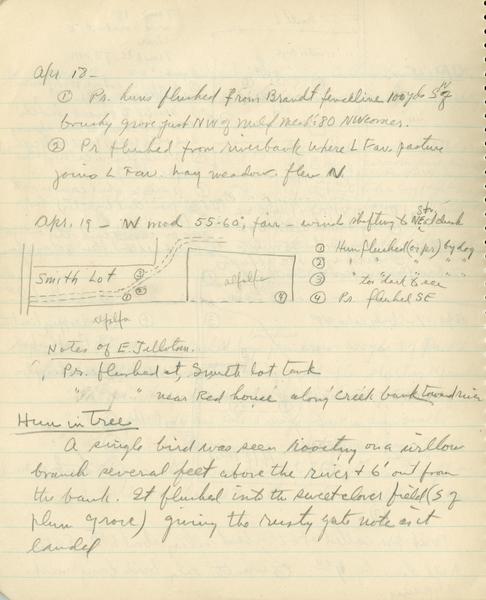 Apr. 18 -
① Pr. huns flushed from Brandt fenceline 100 yds S of
brushy grove just NW of Milf Mead. 80 NW corner.
② Pr flushed from riverbank where L Fav. pasture
joins L Fav. hay meadow. flew N.
Apr. 19 - W mod 55-60°, fair - wind shifting to Str. NE at dusk
Smith Lot ③
① ②
alfalfa
④
alfalfa
① Hun flushed (or pr) by dog
② " " " "
③ " too dark to see " "
④ Pr. flushed SE
Notes of E. Tillotson.
Pr. flushed at, Smith Lot tank
" " near Red house along Creek bank toward river
Hun in Tree
A single bird was seen roosting on a willow
branch several feet above the river & 6' out from
the bank. It flushed into the sweetclover field (S of
plum grove) giving the rusty gate note as it
landed